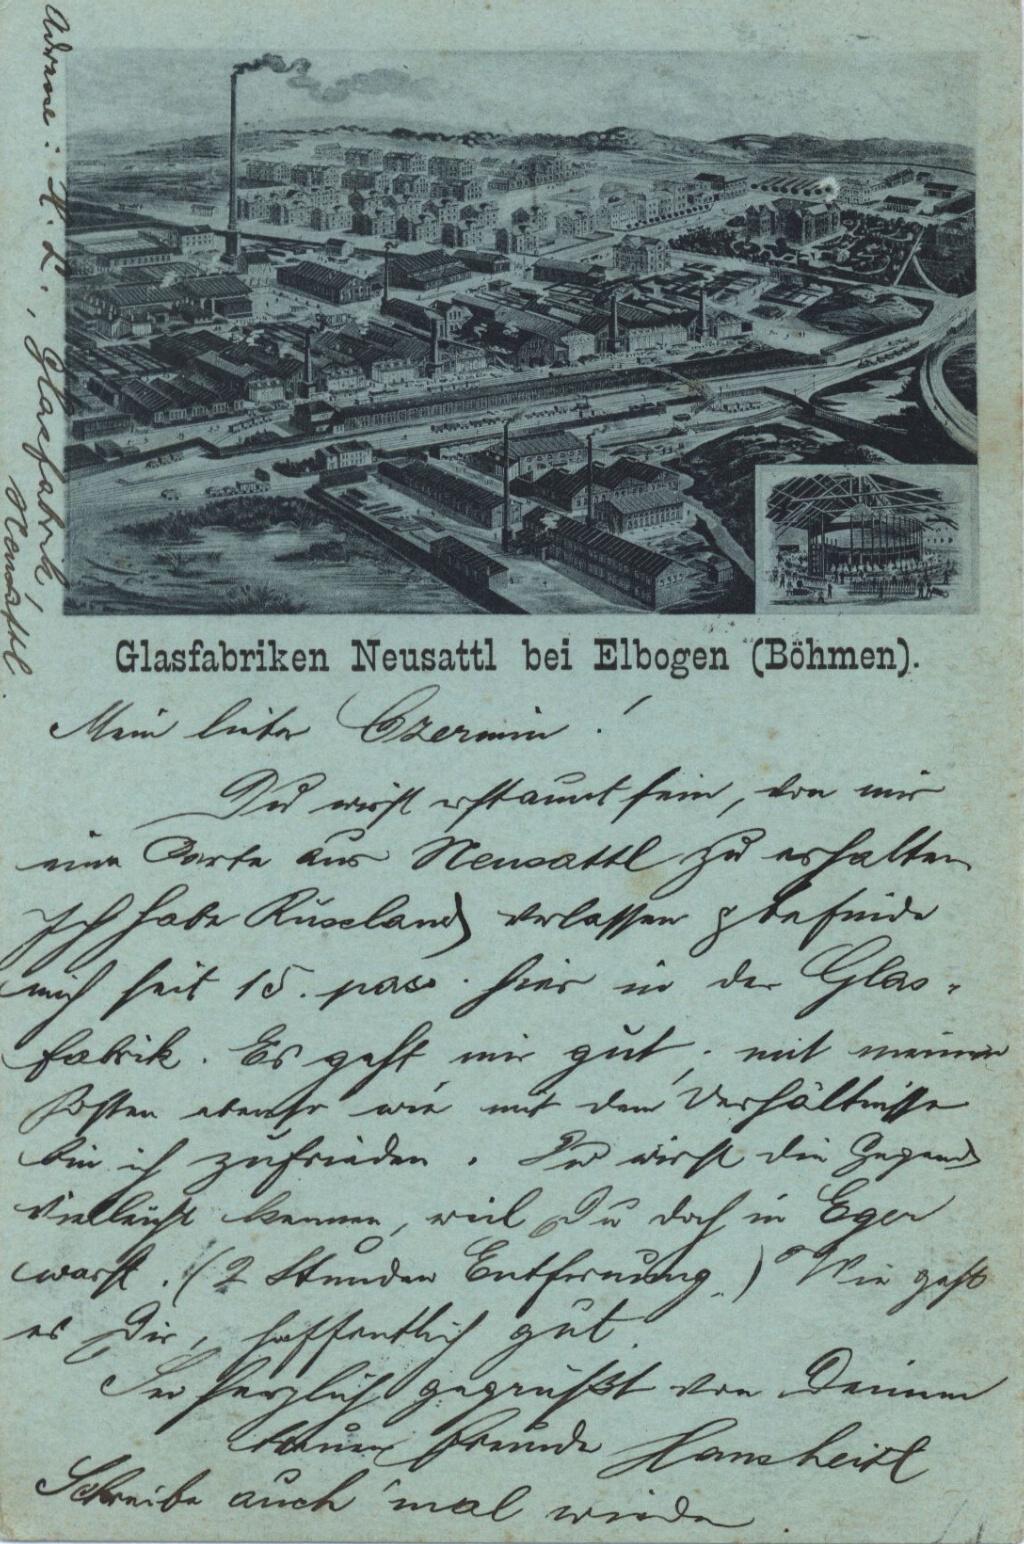 Adresse: H. L., Glasfabrik,
Neusattl.
Glasfabriken Neusattl bei Elbogen (Böhmen).
Mein lieber Czermin!
Du wirst erstaunt sein, von mir
eine Carte aus Neusattl zu erhalten
Ich habe Russland verlassen & befinde
mich seit 15. pass. hier in der Glas-
fabrik. Es geht mir gut, mit meinem
Posten ebenso wie mit den Verhältnissen
bin ich zufrieden. Du wirst die Gegend
vielleicht kennen, weil Du doch in Eger
warst. (2 Stunden Entfernung.) Wie geht
es Dir, hoffentlich gut.
Sei herzlich gegrüßt von Deinem
treuen Freunde Hans
Schreibe auch 'mal wieder.